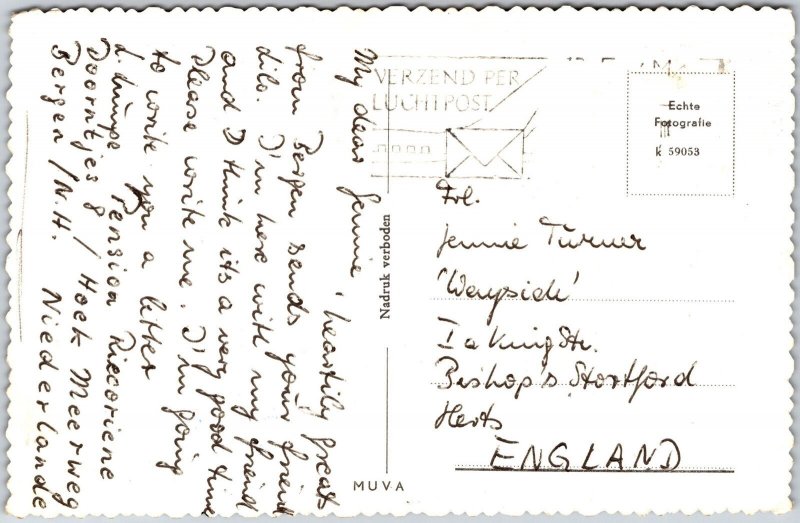 My dear Jennie, heartily greats
from Bergen sends your friend
Dile. I'm here with my friend
and I think its a very good time
Please write me. I'm going
to write you a letter
d. Lümpe Pension Riecoriene
Doorntjes 8 / Hoek Meerweg
Bergen / N.H. Niederlande
VERZEND PER
LUCHTPOST
Echte
Fotografie
k 59053
Nadruk verboden
MUVA
Frl.
Jennie Turner
'Wayside'
1a King Str.
Bishop's Stortford
Herts
ENGLAND